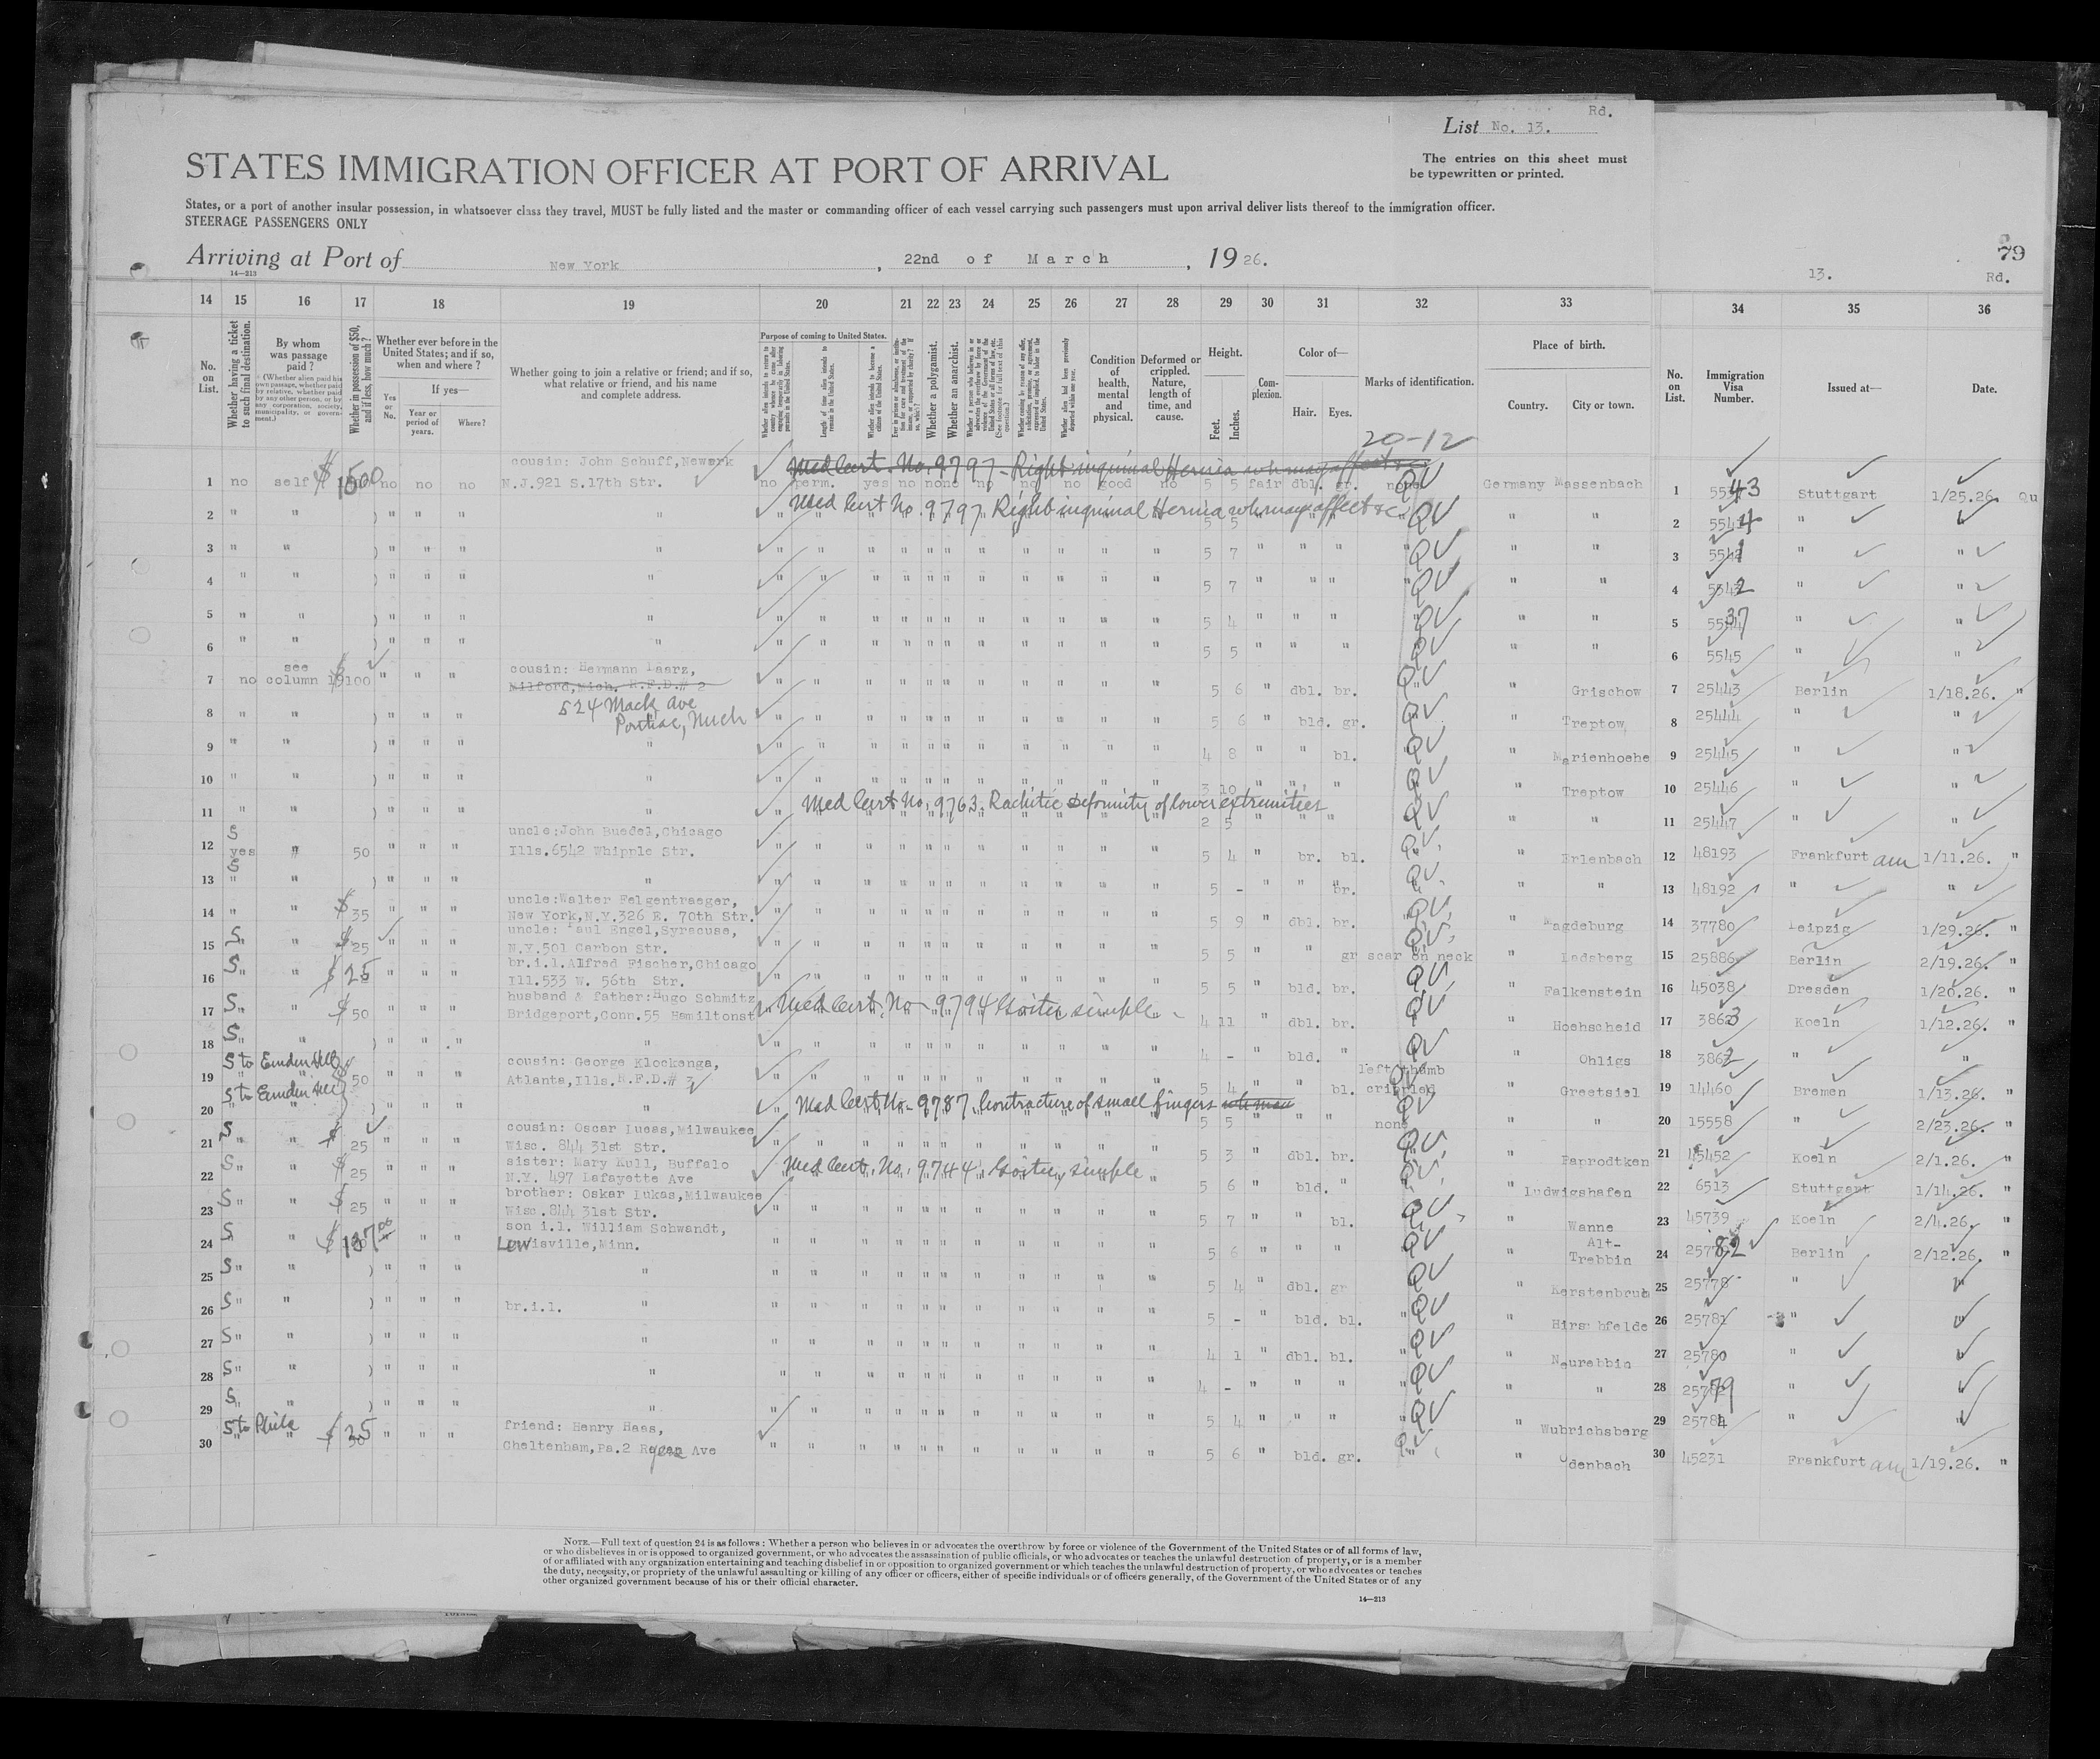 Rd.
List No. 13.
STATES IMMIGRATION OFFICER AT PORT OF ARRIVAL
The entries on this sheet must
be typewritten or printed.
States, or a port of another insular possession, in whatsoever class they travel, MUST be fully listed and the master or commanding officer of each vessel carrying such passengers must upon arrival deliver lists thereof to the immigration officer.
STEERAGE PASSENGERS ONLY
Arriving at Port of New York, 22nd of March, 1926.
14—213
79
13. Rd.
14 15 16 17 18 19 20 21 22 23 24 25 26 27 28 29 30 31 32 33 34 35 36
No. on List.
Whether having a ticket to such final destination.
By whom was passage paid?
Whether in possession of $50, and if less, how much?
Whether ever before in the United States; and if so, when and where?
Yes or No.
If yes—
Year or period of years.
Where?
Whether going to join a relative or friend; and if so, what relative or friend, and his name and complete address.
Purpose of coming to United States.
Length of time alien intends to remain in the United States.
Whether alien intends to become a citizen of the United States.
Whether a polygamist.
Whether an anarchist.
Condition of health, mental and physical.
Deformed or crippled. Nature, length of time, and cause.
Height.
Feet. Inches.
Complexion.
Color of—
Hair. Eyes.
Marks of identification.
Place of birth.
Country. City or town.
No. on List.
Immigration Visa Number.
Issued at—
Date.
20-12
cousin: John Schuff, Newark
Med Cert. No. 9797 - Right inguinal Hernia wh may affect
1 no self $ 1500 no no no N.J. 921 S. 17th Str. no perm. yes no none no no no good no 5 5 fair dbl. gr. none QV Germany Massenbach 1 5543 Stuttgart 1/25.26. Qu
Med Cert No. 9797 Right inguinal Hernia wh may affect &c
2 " " " " " " 5 5 QV " " 2 5544 " "
3 " " " " " " 5 7 " " " QV " " 3 5541 " "
4 " " " " " " 5 7 " " " QV " " 4 5542 " "
5 " " " " " " 5 4 " " " QV " " 5 5537 " "
6 " " " " " " 5 5 " " " QV " " 6 5545 " "
see
7 no column 19 $ 100 " " " cousin: Hermann Paarz, 5 6 " dbl. br. QV " Grischow 7 25443 Berlin 1/18.26. "
Milford, Mich. R.F.D.# 2
524 Mack Ave
Pontiac, Mich
8 " " " " " 5 6 " bld. gr. QV " Treptow 8 25444 " "
9 " " " " " " 4 8 " " bl. QV " Marienhoehe 9 25445 " "
10 " " " " " " 3 10 " " " QV " Treptow 10 25446 " "
Med Cert No. 9763. Rachitic deformity of lower extremities
11 " " " " " " 2 5 " " QV " " 11 25447 " "
S
uncle: John Buedel, Chicago
12 yes " 50 " " " Ills. 6542 Whipple Str. 5 4 " br. bl. QV " Erlenbach 12 48193 Frankfurt am 1/11.26. "
S
13 " " " " " " 5 - " " br. QV " " 13 48192 " "
uncle: Walter Felgentraeger,
14 " " $ 35 " " " New York, N.Y. 326 E. 70th Str. 5 9 " dbl. br. QV " Magdeburg 14 37780 Leipzig 1/29.26. "
uncle: Paul Engel, Syracuse,
15 S " " $ 25 " " " N.Y. 501 Carbon Str. 5 5 " " gr scar on neck QV " Ladsberg 15 25886 Berlin 2/19.26. "
br.i.l. Alfred Fischer, Chicago
16 S " " $ 25 " " " Ill. 533 W. 56th Str. 5 5 " bld. br. QV " Falkenstein 16 45038 Dresden 1/20.26. "
husband & father: Hugo Schmitz
Med Cert. No - 9794 Goitre simple -
17 S " " $ 50 " " " Bridgeport, Conn. 55 Hamiltonst 4 11 " dbl. br. QV " Hoehscheid 17 3863 Koeln 1/12.26. "
18 S " " " " " " 4 - " bld. " QV " Ohligs 18 3862 " "
S to Emden Ill
cousin: George Klockenga,
left thumb
19 " " $ 50 " " " Atlanta, Ills. R.F.D.# 3 5 4 " " bl. crippled QV " Greetsiel 19 14460 Bremen 1/13.26. "
S to Emden Ill
Med Cert. No - 9787 Contracture of small fingers wh may
20 " " " " " " 5 5 " " " none QV " " 20 15558 " 2/23.26. "
cousin: Oscar Lucas, Milwaukee
21 S " " $ 25 " " " Wisc. 844 31st Str. 5 3 " dbl. br. QV " Paprodtken 21 45452 Koeln 2/1.26. "
sister: Mary Kull, Buffalo
Med Cert. No. 9744 Goitre, simple
22 S " " $ 25 " " " N.Y. 497 Lafayette Ave 5 6 " bld. " QV " Ludwigshafen 22 6513 Stuttgart 1/14.26. "
brother: Oskar Lukas, Milwaukee
23 S " " $ 25 " " " Wisc. 844 31st Str. 5 7 " " bl. QV " Wanne 23 45739 Koeln 2/4.26. "
son i.l. William Schwandt,
24 S " $ 137 " " " Lewisville, Minn. 5 6 " " " QV " Alt-Trebbin 24 25782 Berlin 2/12.26. "
25 S " " " " " " 5 4 " dbl. gr QV " Kerstenbruh 25 25778 " "
26 S " " " " " br.i.l. " 5 - " bld. bl. QV " Hirschfelde 26 25781 " "
27 S " " " " " " 4 1 " dbl. bl. QV " Neurebbin 27 25780 " "
28 S " " " " " " 4 - " " " QV " " 28 25779 " "
29 S " " " " " " 5 4 " " " QV " Wubrichsberg 29 25784 " "
S to Phila
friend: Henry Haas,
30 " " $ 25 " " " Cheltenham, Pa. 2 Ryan Ave 5 6 " bld. gr. QV " Odenbach 30 45231 Frankfurt am 1/19.26. "
NOTE.—Full text of question 24 is as follows: Whether a person who believes in or advocates the overthrow by force or violence of the Government of the United States or of all forms of law,
or who disbelieves in or is opposed to organized government, or who advocates the assassination of public officials, or who advocates or teaches the unlawful destruction of property, or is a member
of or affiliated with any organization entertaining and teaching disbelief in or opposition to organized government or which teaches the unlawful destruction of property, or who advocates or teaches
the duty, necessity, or propriety of the unlawful assaulting or killing of any officer or officers, either of specific individuals or of officers generally, of the Government of the United States or of any
other organized government because of his or their official character.
14—213